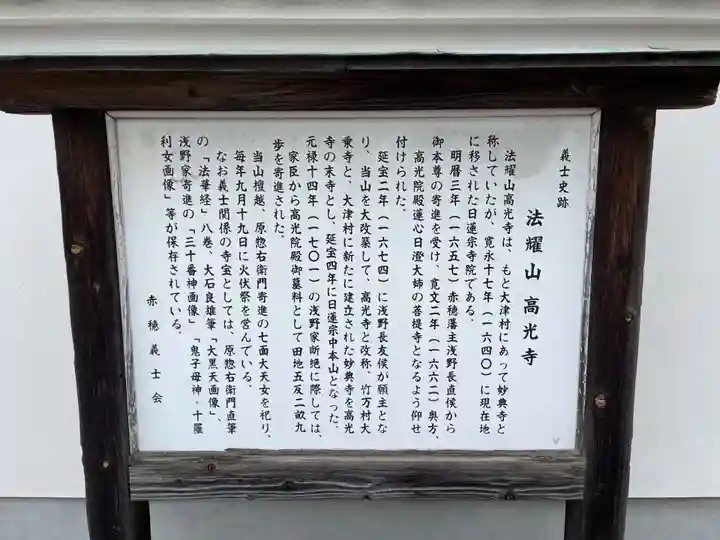 義士史跡
法耀山 高光寺
法耀山高光寺は、もと大津村にあって妙典寺と
称していたが、寛永十七年（一六四〇）に現在地
に移された日蓮宗寺院である。
明暦三年（一六五七）赤穂藩主浅野長直侯から
御本尊の寄進を受け、寛文二年（一六六二）奥方、
高光院殿蓮心日澄大姉の菩提寺となるよう仰せ
付けられた。
延宝二年（一六七四）に浅野長友侯が願主とな
り、当山を大改築して、高光寺と改称、竹万村大
乗寺と、大津村に新たに建立された妙典寺を高光
寺の末寺とし、延宝四年に日蓮宗中本山となった。
元禄十四年（一七〇一）の浅野家断絶に際しては、
家臣から高光院殿御墓料として田地五反二畝九
歩を寄進された。
当山檀越、原惣右衛門寄進の七面大天女を祀り、
毎年九月十九日に火伏祭を営んでいる。
なお義士関係の寺宝としては、原惣右衛門直筆
の「法華経」八巻、大石良雄筆「大黒天画像」、
浅野家寄進の「三十番神画像」「鬼子母神・十羅
刹女画像」等が保存されている。
赤穂義士会